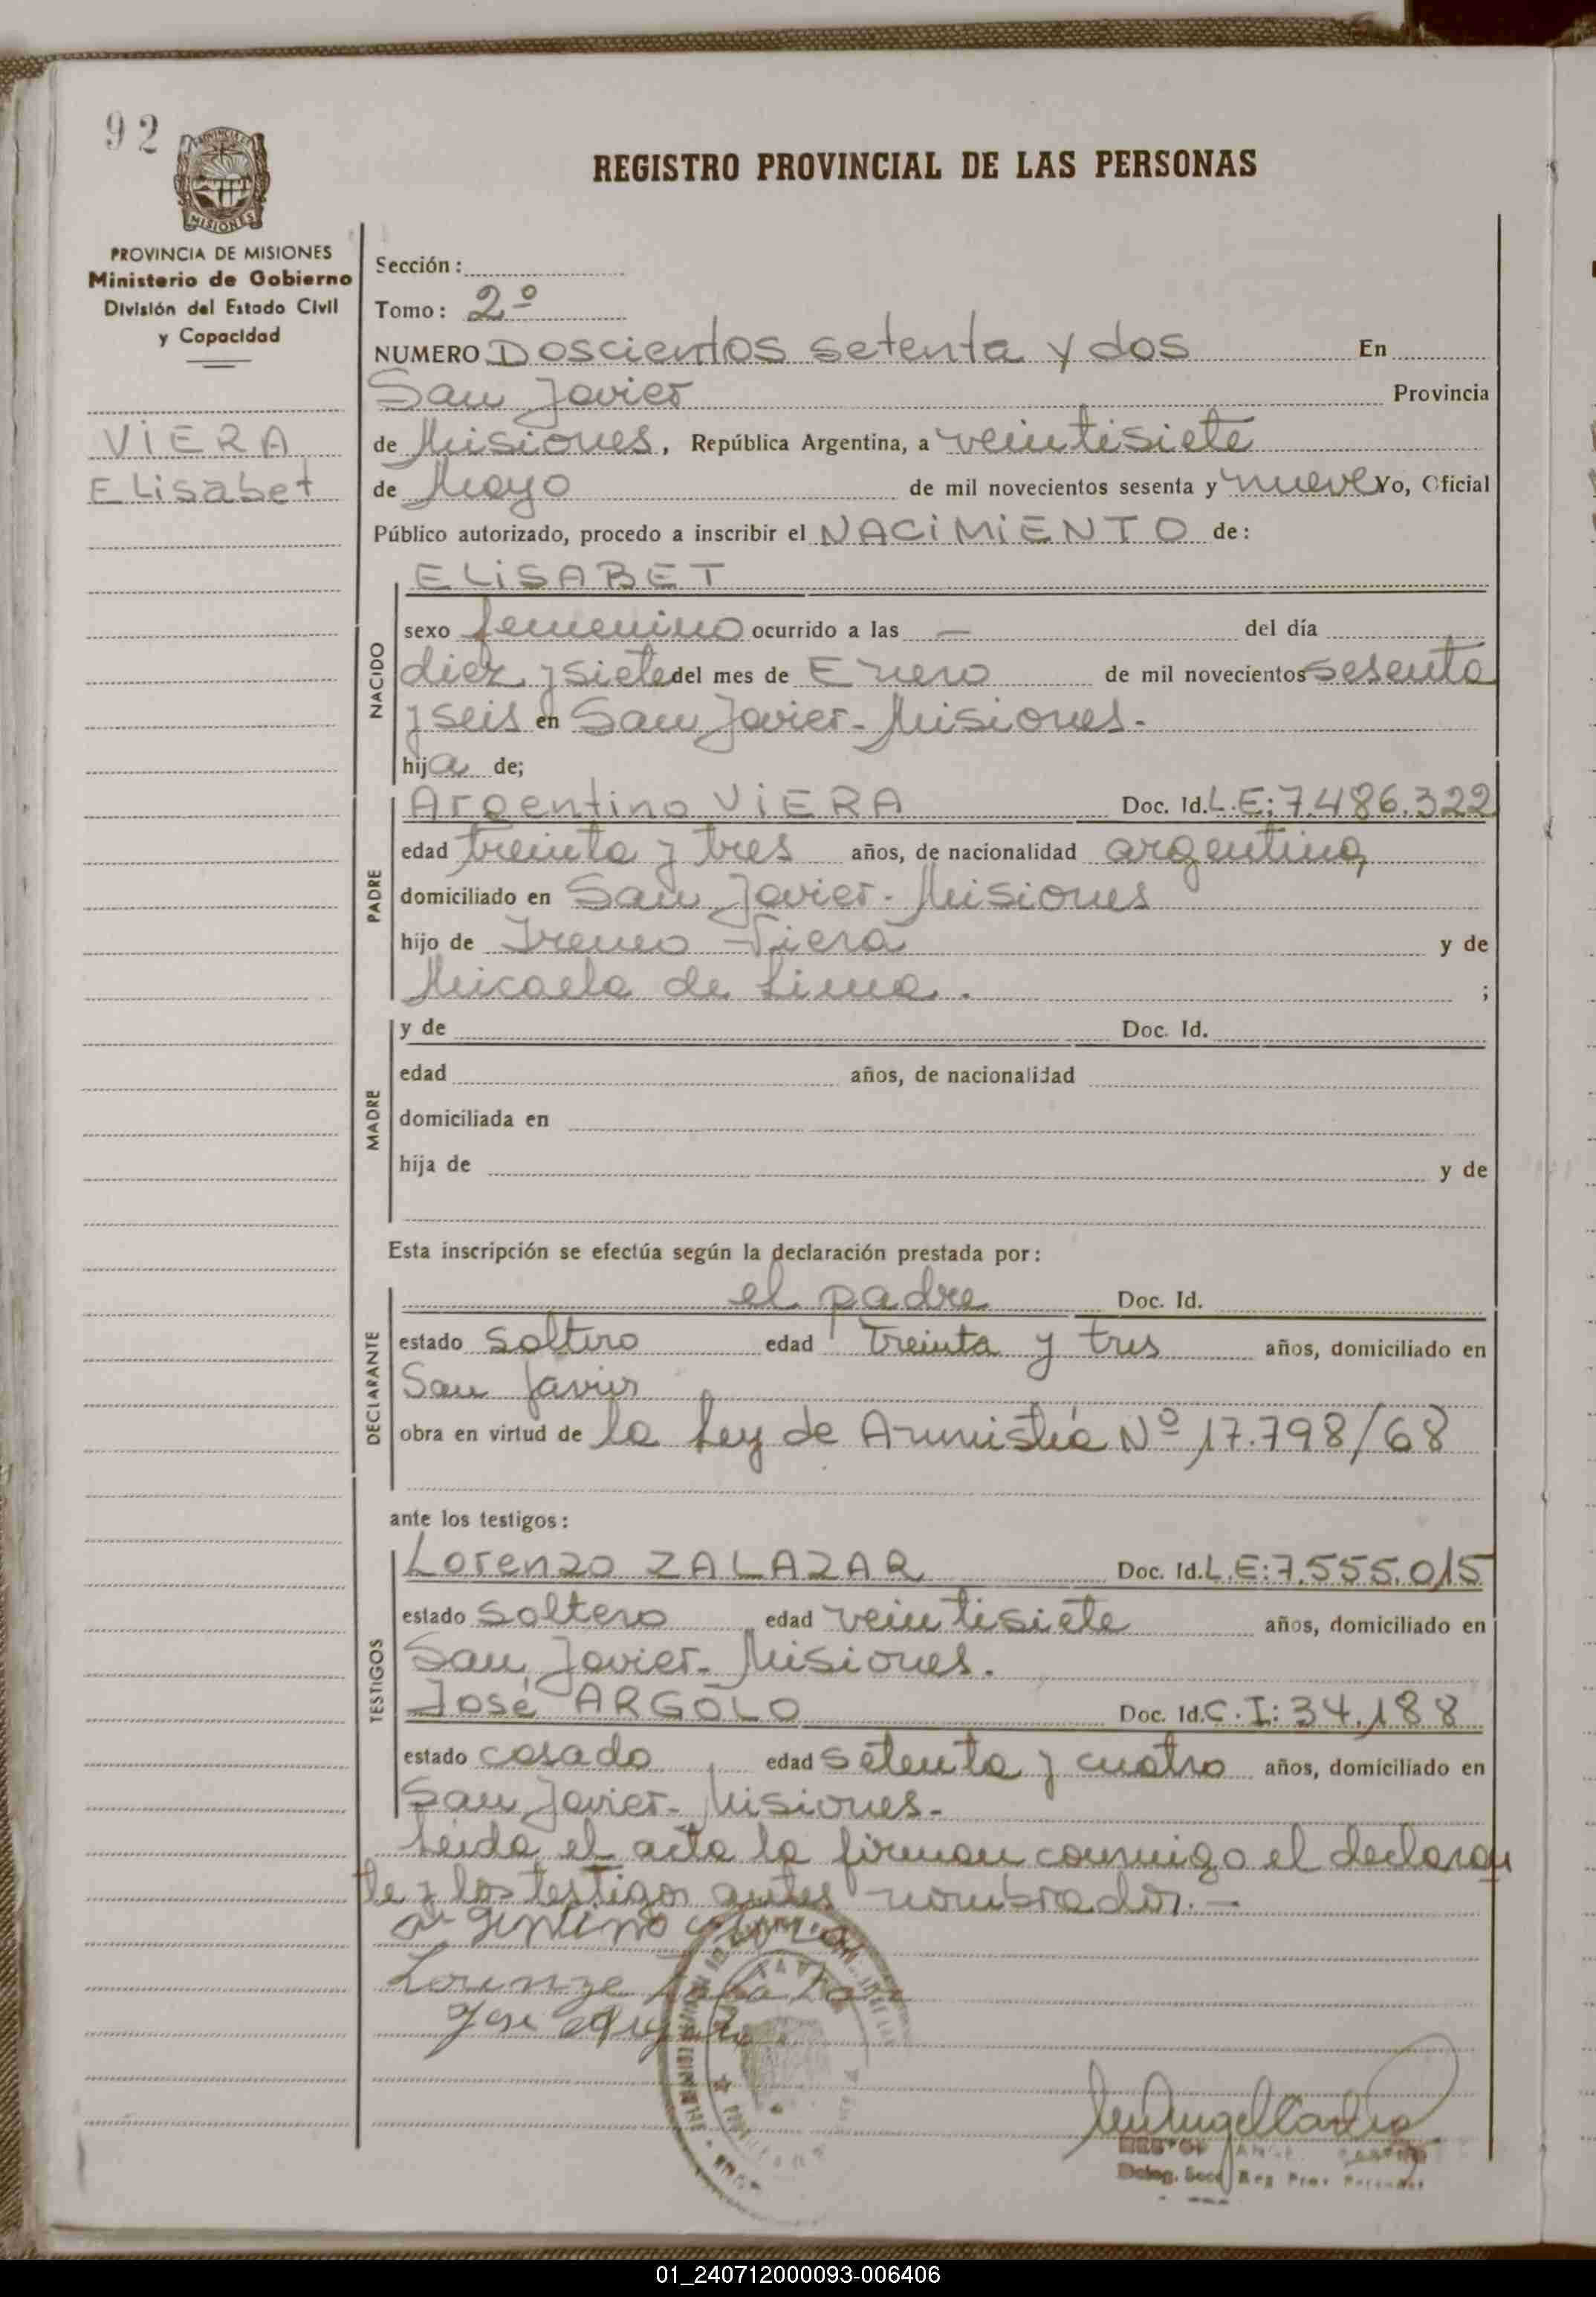 92
MISIONES
REGISTRO PROVINCIAL DE LAS PERSONAS
PROVINCIA DE MISIONES
Ministerio de Gobierno
División del Estado Civil
y Capacidad
VIERA
ELisabet
Sección:
Tomo: 2º
NUMERO Doscientos setenta y dos En
San Javier Provincia
de Misiones, República Argentina, a veintisiete
de Mayo de mil novecientos sesenta y nueve Yo, Oficial
Público autorizado, procedo a inscribir el NACIMIENTO de:
NACIDO
ELISABET
sexo femenino ocurrido a las — del día
diez y siete del mes de Enero de mil novecientos sesenta
y seis en San Javier - Misiones.
hija de;
PADRE
Argentino VIERA Doc. Id. L.E: 7.486.322
edad treinta y tres años, de nacionalidad argentina,
domiciliado en San Javier - Misiones
hijo de Ireneo Viera y de
Micaela de Lima. ;
MADRE
y de Doc. Id.
edad años, de nacionalidad
domiciliada en
hija de y de
Esta inscripción se efectúa según la declaración prestada por:
DECLARANTE
el padre Doc. Id.
estado soltero edad treinta y tres años, domiciliado en
San Javier
obra en virtud de la Ley de Amnistía Nº 17.798/68
ante los testigos:
TESTIGOS
Lorenzo ZALAZAR Doc. Id. L.E: 7.555.015
estado soltero edad veintisiete años, domiciliado en
San Javier - Misiones.
José ARGOLO Doc. Id. C.I: 34.188
estado casado edad setenta y cuatro años, domiciliado en
San Javier - Misiones -
Leida el acta la firman conmigo el declaran
te y los testigos antes nombrados. —
argentino
Lorenzo
Jose
Deleg. Secc. Reg. Prov. Personas
01_240712000093-006406